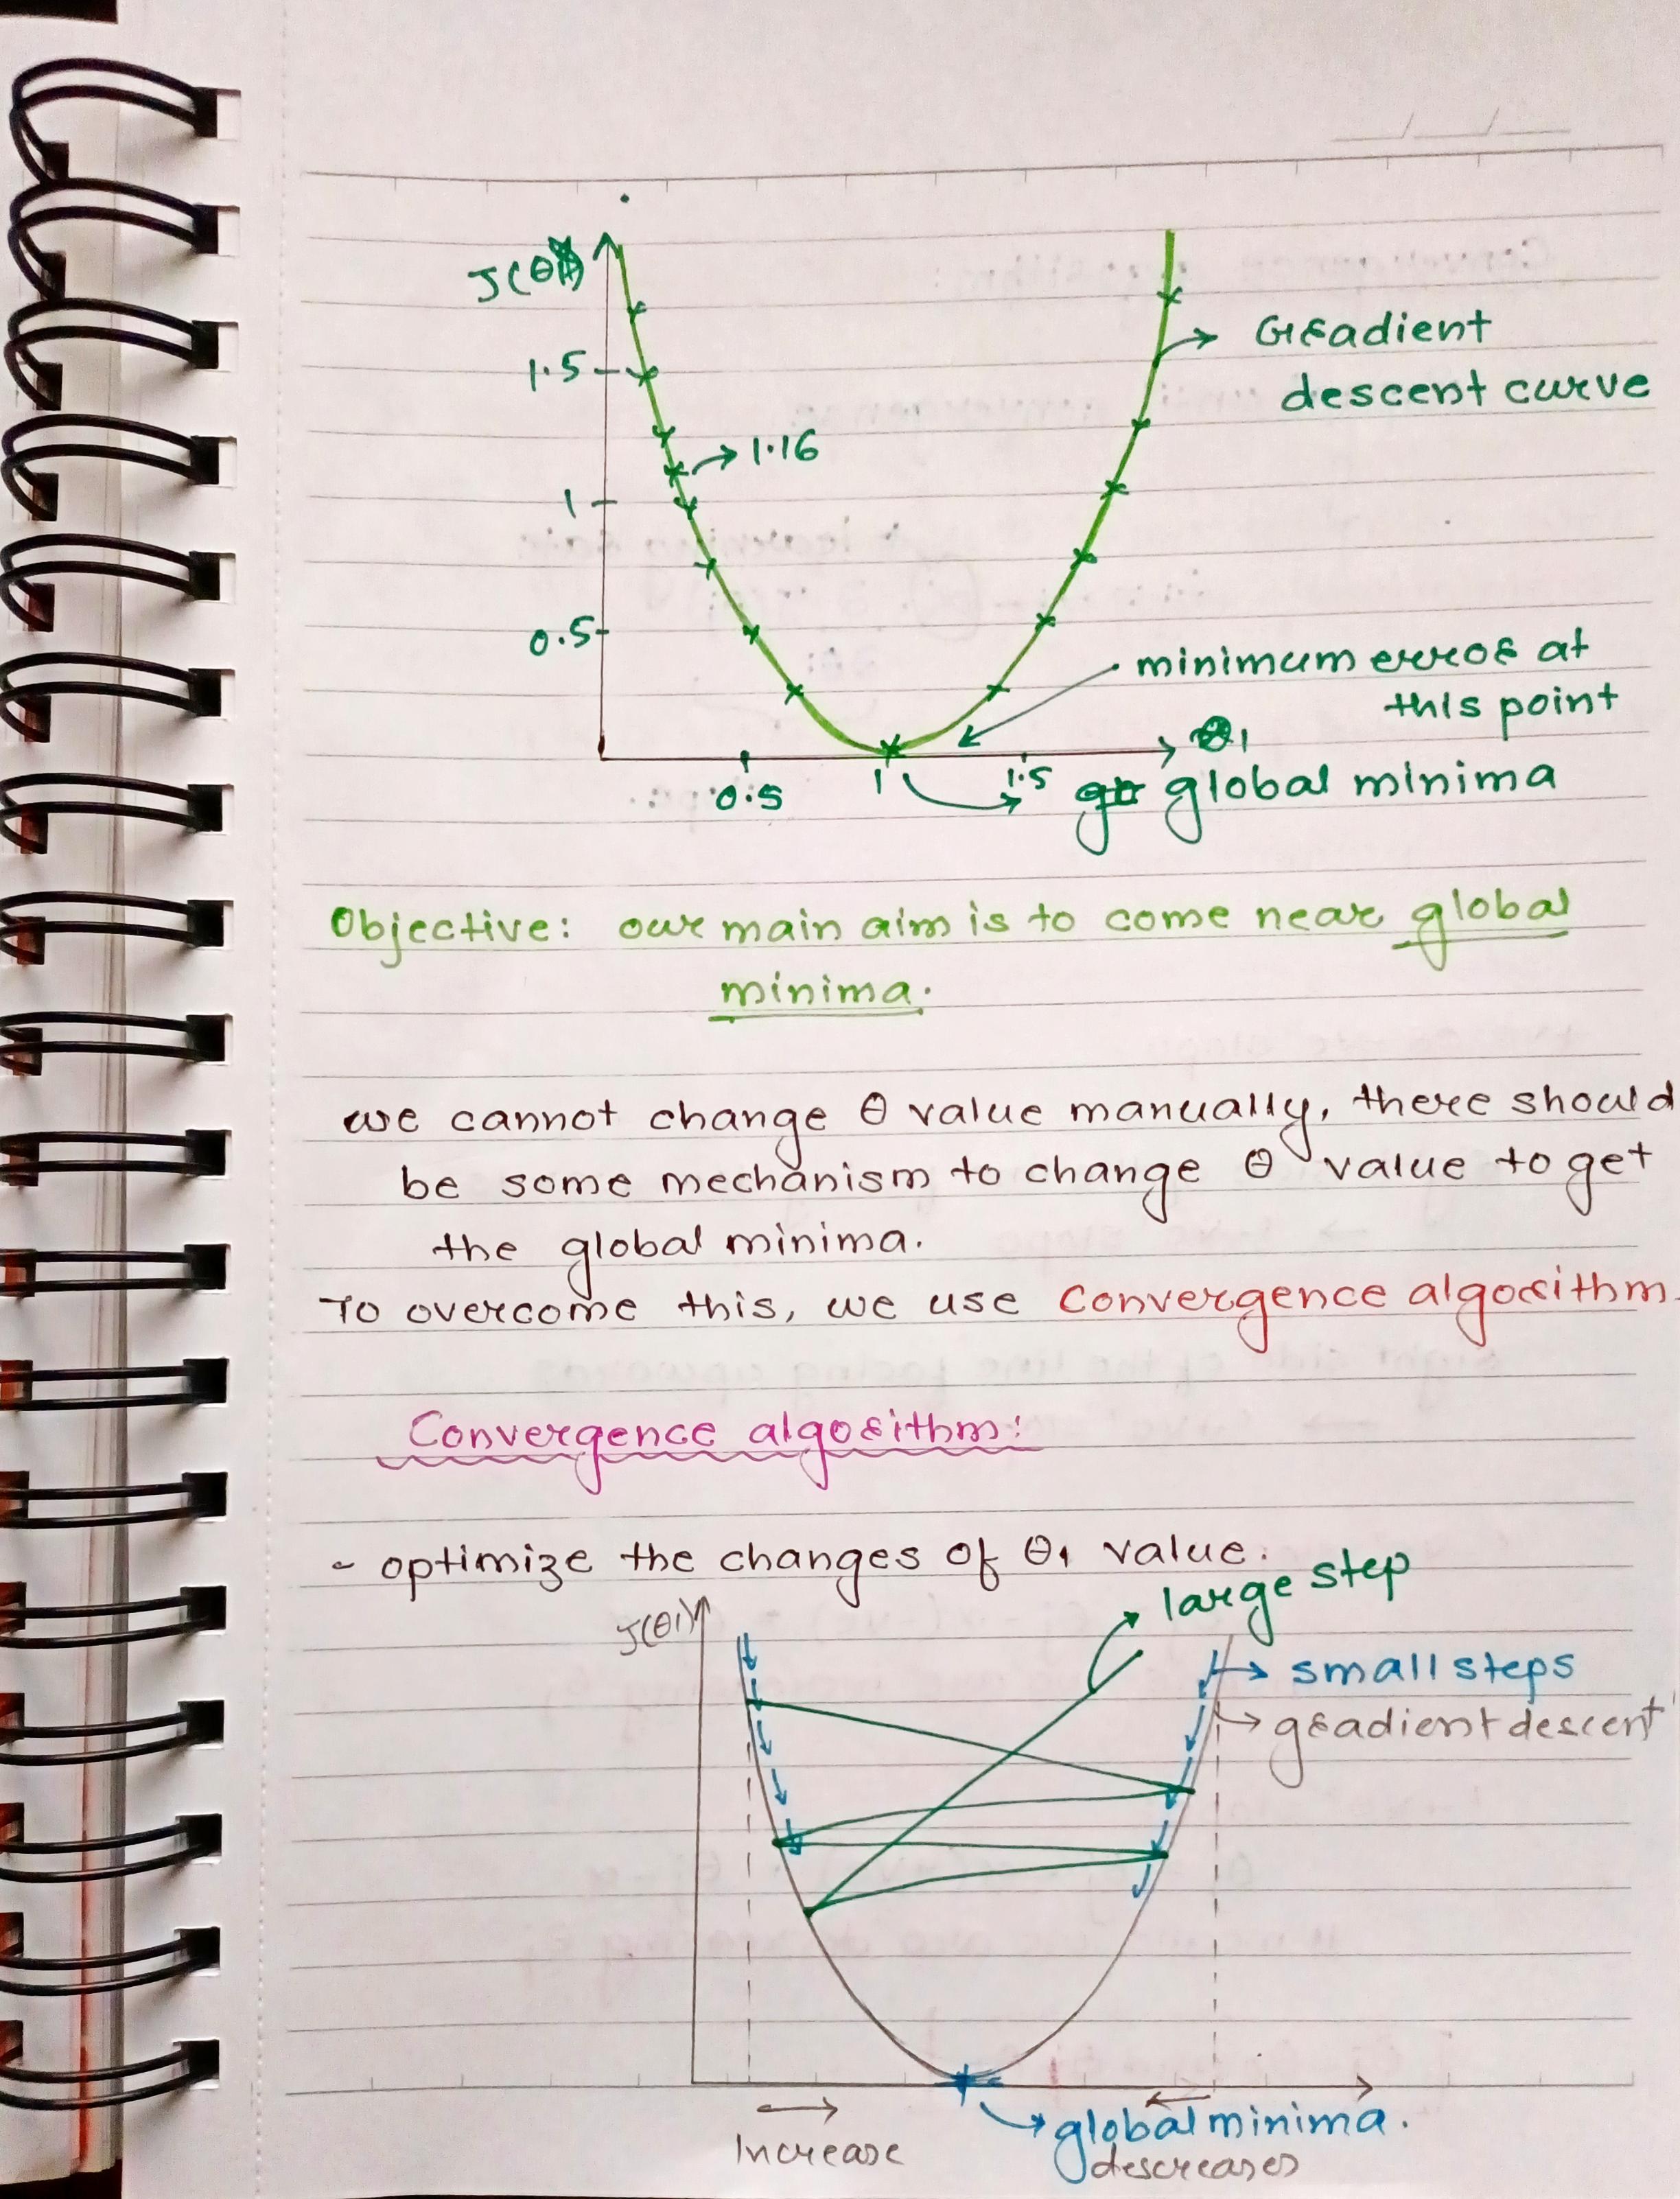 J(θ
1.5
1.16
1
0.5
Gradient
descent curve
minimum error at
this point
θ1
0.5
1
1.5
global minima
Objective: our main aim is to come near global
minima.
we cannot change θ value manually, there should
be some mechanism to change θ value to get
the global minima.
To overcome this, we use Convergence algorithm.
Convergence algorithm:
- optimize the changes of θ1 value.
large step
J(θ1)
small steps
gradient descent
global minima.
Increase
descreases